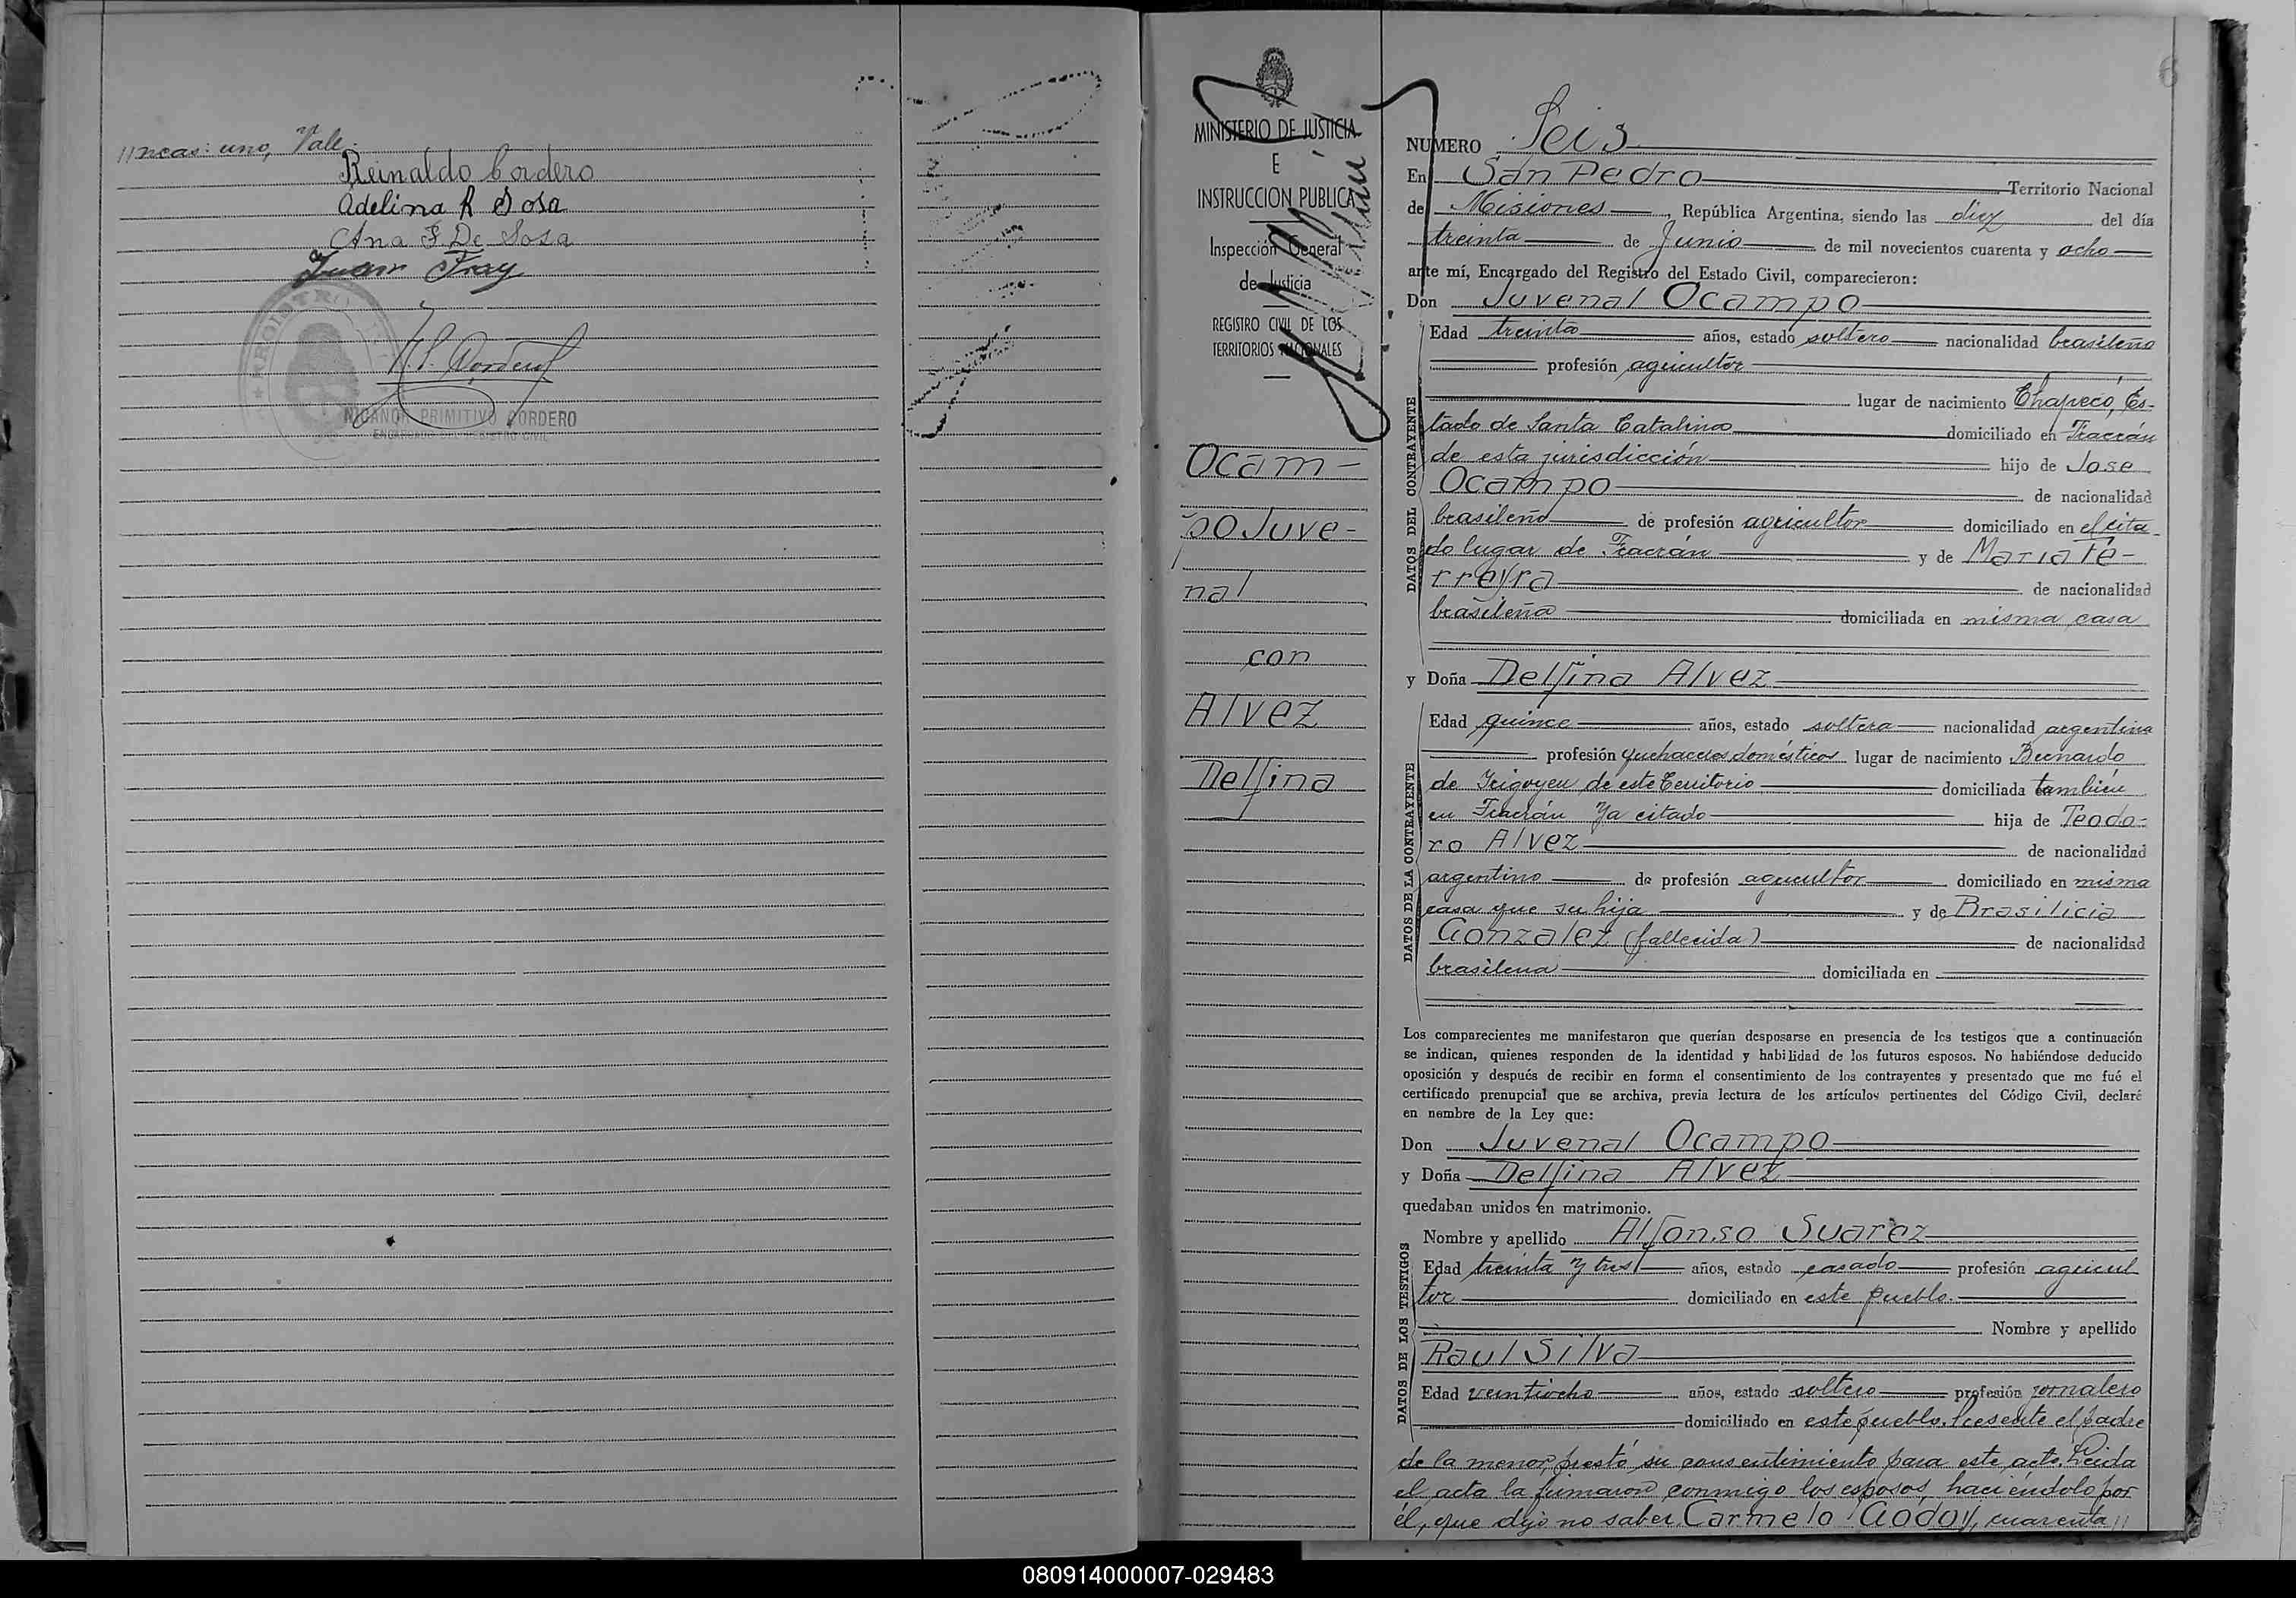 //neas: uno, Vale.
Reinaldo Cordero
Adelina R Sosa
Ana F. De Sosa
Juan Fray
REGISTRO
NICANOR PRIMITIVO CORDERO
ENCARGADO DEL REGISTRO CIVIL
MINISTERIO DE JUSTICIA
E
INSTRUCCION PUBLICA
Inspección General
de Justicia
REGISTRO CIVIL DE LOS
TERRITORIOS NACIONALES
Ocam-
po Juve-
nal
con
Alvez
Delfina
6
NUMERO Seis
En San Pedro Territorio Nacional
de Misiones, República Argentina, siendo las diez del día
treinta de Junio de mil novecientos cuarenta y ocho
ante mí, Encargado del Registro del Estado Civil, comparecieron:
Don Juvenal Ocampo
DATOS DEL CONTRAYENTE
Edad treinta años, estado soltero nacionalidad brasileño
profesión agricultor
lugar de nacimiento Chapecó, Es-
tado de Santa Catalina domiciliado en Fracrán
de esta jurisdicción hijo de Jose
Ocampo de nacionalidad
brasileño de profesión agricultor domiciliado en el cita-
do lugar de Fracrán y de Maria Fe-
rreyra de nacionalidad
brasileña domiciliada en misma casa
y Doña Delfina Alvez
DATOS DE LA CONTRAYENTE
Edad quince años, estado soltera nacionalidad argentina
profesión quehaceres domésticos lugar de nacimiento Bernardo
de Irigoyen de este Territorio domiciliada también
en Fracrán ya citado hija de Teodo-
ro Alvez de nacionalidad
argentino de profesión agricultor domiciliado en misma
casa que su hija y de Brasilicia
Gonzalez (fallecida) de nacionalidad
brasilena domiciliada en
Los comparecientes me manifestaron que querían desposarse en presencia de los testigos que a continuación
se indican, quienes responden de la identidad y habilidad de los futuros esposos. No habiéndose deducido
oposición y después de recibir en forma el consentimiento de los contrayentes y presentado que me fué el
certificado prenupcial que se archiva, previa lectura de los artículos pertinentes del Código Civil, declaré
en nombre de la Ley que:
Don Juvenal Ocampo
y Doña Delfina Alvez
quedaban unidos en matrimonio.
DATOS DE LOS TESTIGOS
Nombre y apellido Alfonso Suarez
Edad treinta y tres años, estado casado profesión agricul
tor domiciliado en este pueblo.
Nombre y apellido
Raul Silva
Edad veintiocho años, estado soltero profesión jornalero
domiciliado en este pueblo. Presente el padre
de la menor, prestó su consentimiento para este acto. Leida
el acta la firmaron conmigo los esposos, haciéndolo por
él, que dijo no saber, Carmelo Godoy, cuarenta //
080914000007-029483